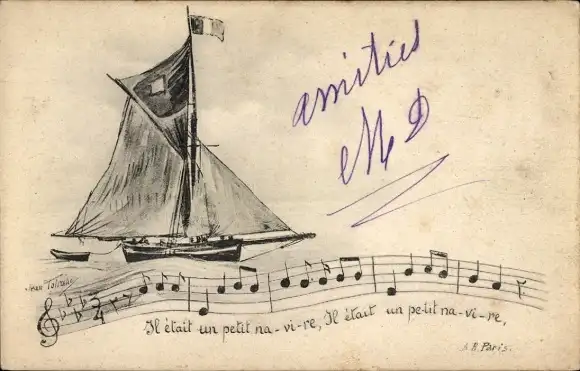 amitiés
M D
Jean
2
4
Il était un petit na-vi-re, Il était un pe-tit na-vi-re,
Paris.